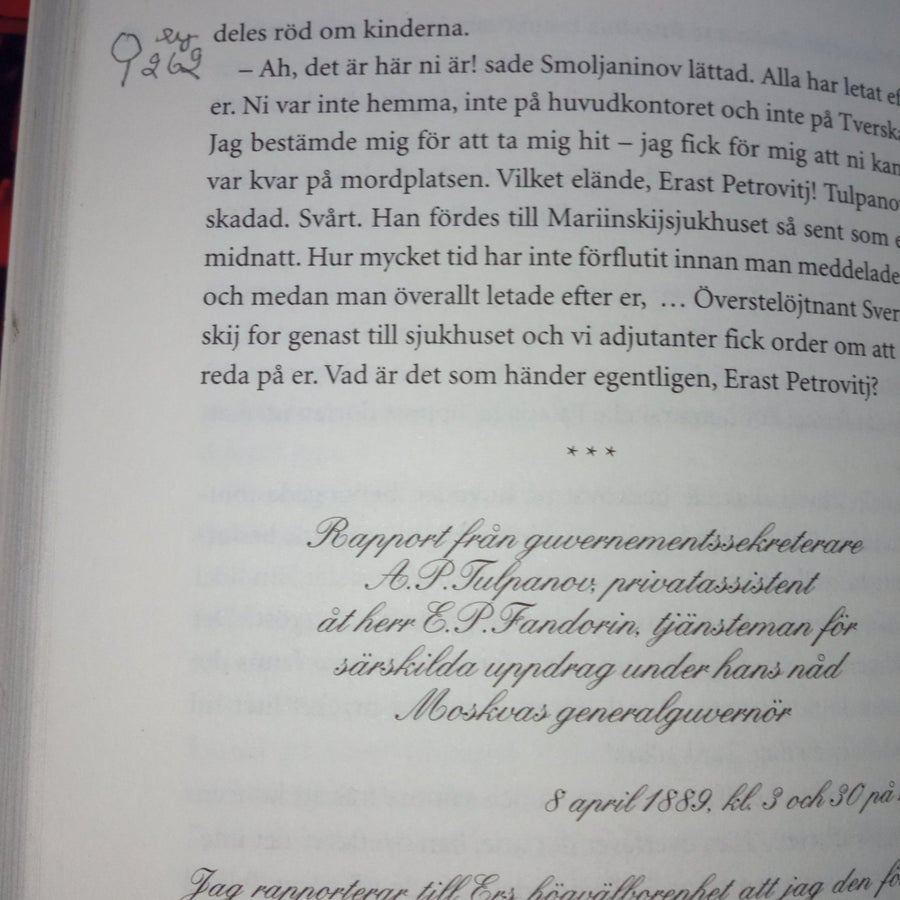 ey
262
deles röd om kinderna.
– Ah, det är här ni är! sade Smoljaninov lättad. Alla har letat ef
er. Ni var inte hemma, inte på huvudkontoret och inte på Tverska
Jag bestämde mig för att ta mig hit – jag fick för mig att ni kan
var kvar på mordplatsen. Vilket elände, Erast Petrovitj! Tulpano
skadad. Svårt. Han fördes till Mariinskijsjukhuset så sent som e
midnatt. Hur mycket tid har inte förflutit innan man meddelade
och medan man överallt letade efter er, … Överstelöjtnant Sver
skij for genast till sjukhuset och vi adjutanter fick order om att
reda på er. Vad är det som händer egentligen, Erast Petrovitj?
* * *
Rapport från guvernementssekreterare
A.P.Tulpanov, privatassistent
åt herr E.P.Fandorin, tjänsteman för
särskilda uppdrag under hans nåd
Moskvas generalguvernör
8 april 1889, kl. 3 och 30 på
Jag rapporterar till Ers högvälborenhet att jag den fö